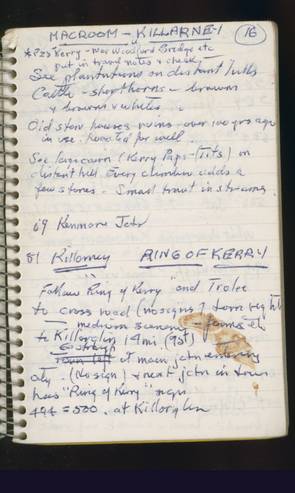 MACROOM - KILLARNEY 16
* P25 Kerry - Woodford Bridge etc
put in travel notes & check
See plantations on distant hills
Cattle - shorthorns - browns
& browns & whites.
Old stone houses ruins - over 100 yrs ago
in use. Roofed for well
See large cairn (Kerry Paps - Tits) on
distant hill. Every climber adds a
few stones. Small trout in streams
69 Kenmare Jctn
81 Killarney RING OF KERRY
Follow "Ring of Kerry" and Tralee
to cross road (no signs) turn right
medium scenery - farms etc
to Killorglin 14 mi (95)
at main jctn entering
city. (No sign) & next jctn in town
has "Ring of Kerry" sign
494 = 500. at Killorglin